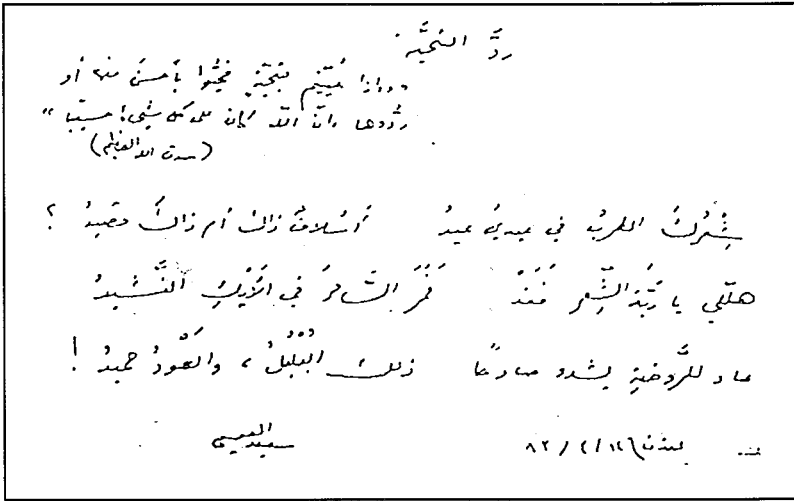 ردَّ التحيَّة
"وإذا حُيِّيتم بتحيّةٍ فحيُّوا بأحسنَ منها أو
رُدّوها إنّ الله كان على كل شيء حسيبا"
(صدق الله العظيم)
شِعْرُكَ المطربُ في عيديَ عيدُ أسُلافٌ ذاك أم ذاكَ قصيدُ ؟
هلّلي يا ربَّةَ الشِّعر فَقَدْ غَمَرَ السَّامرَ في الأيْكِ النَّشيدُ
عاد للرَّوضةِ يشدو صادحًا ذلك البُلْبُلُ ، والعَوْدُ حميدُ !
لندن ٨٢/٢/١٤ سعيد العيسى